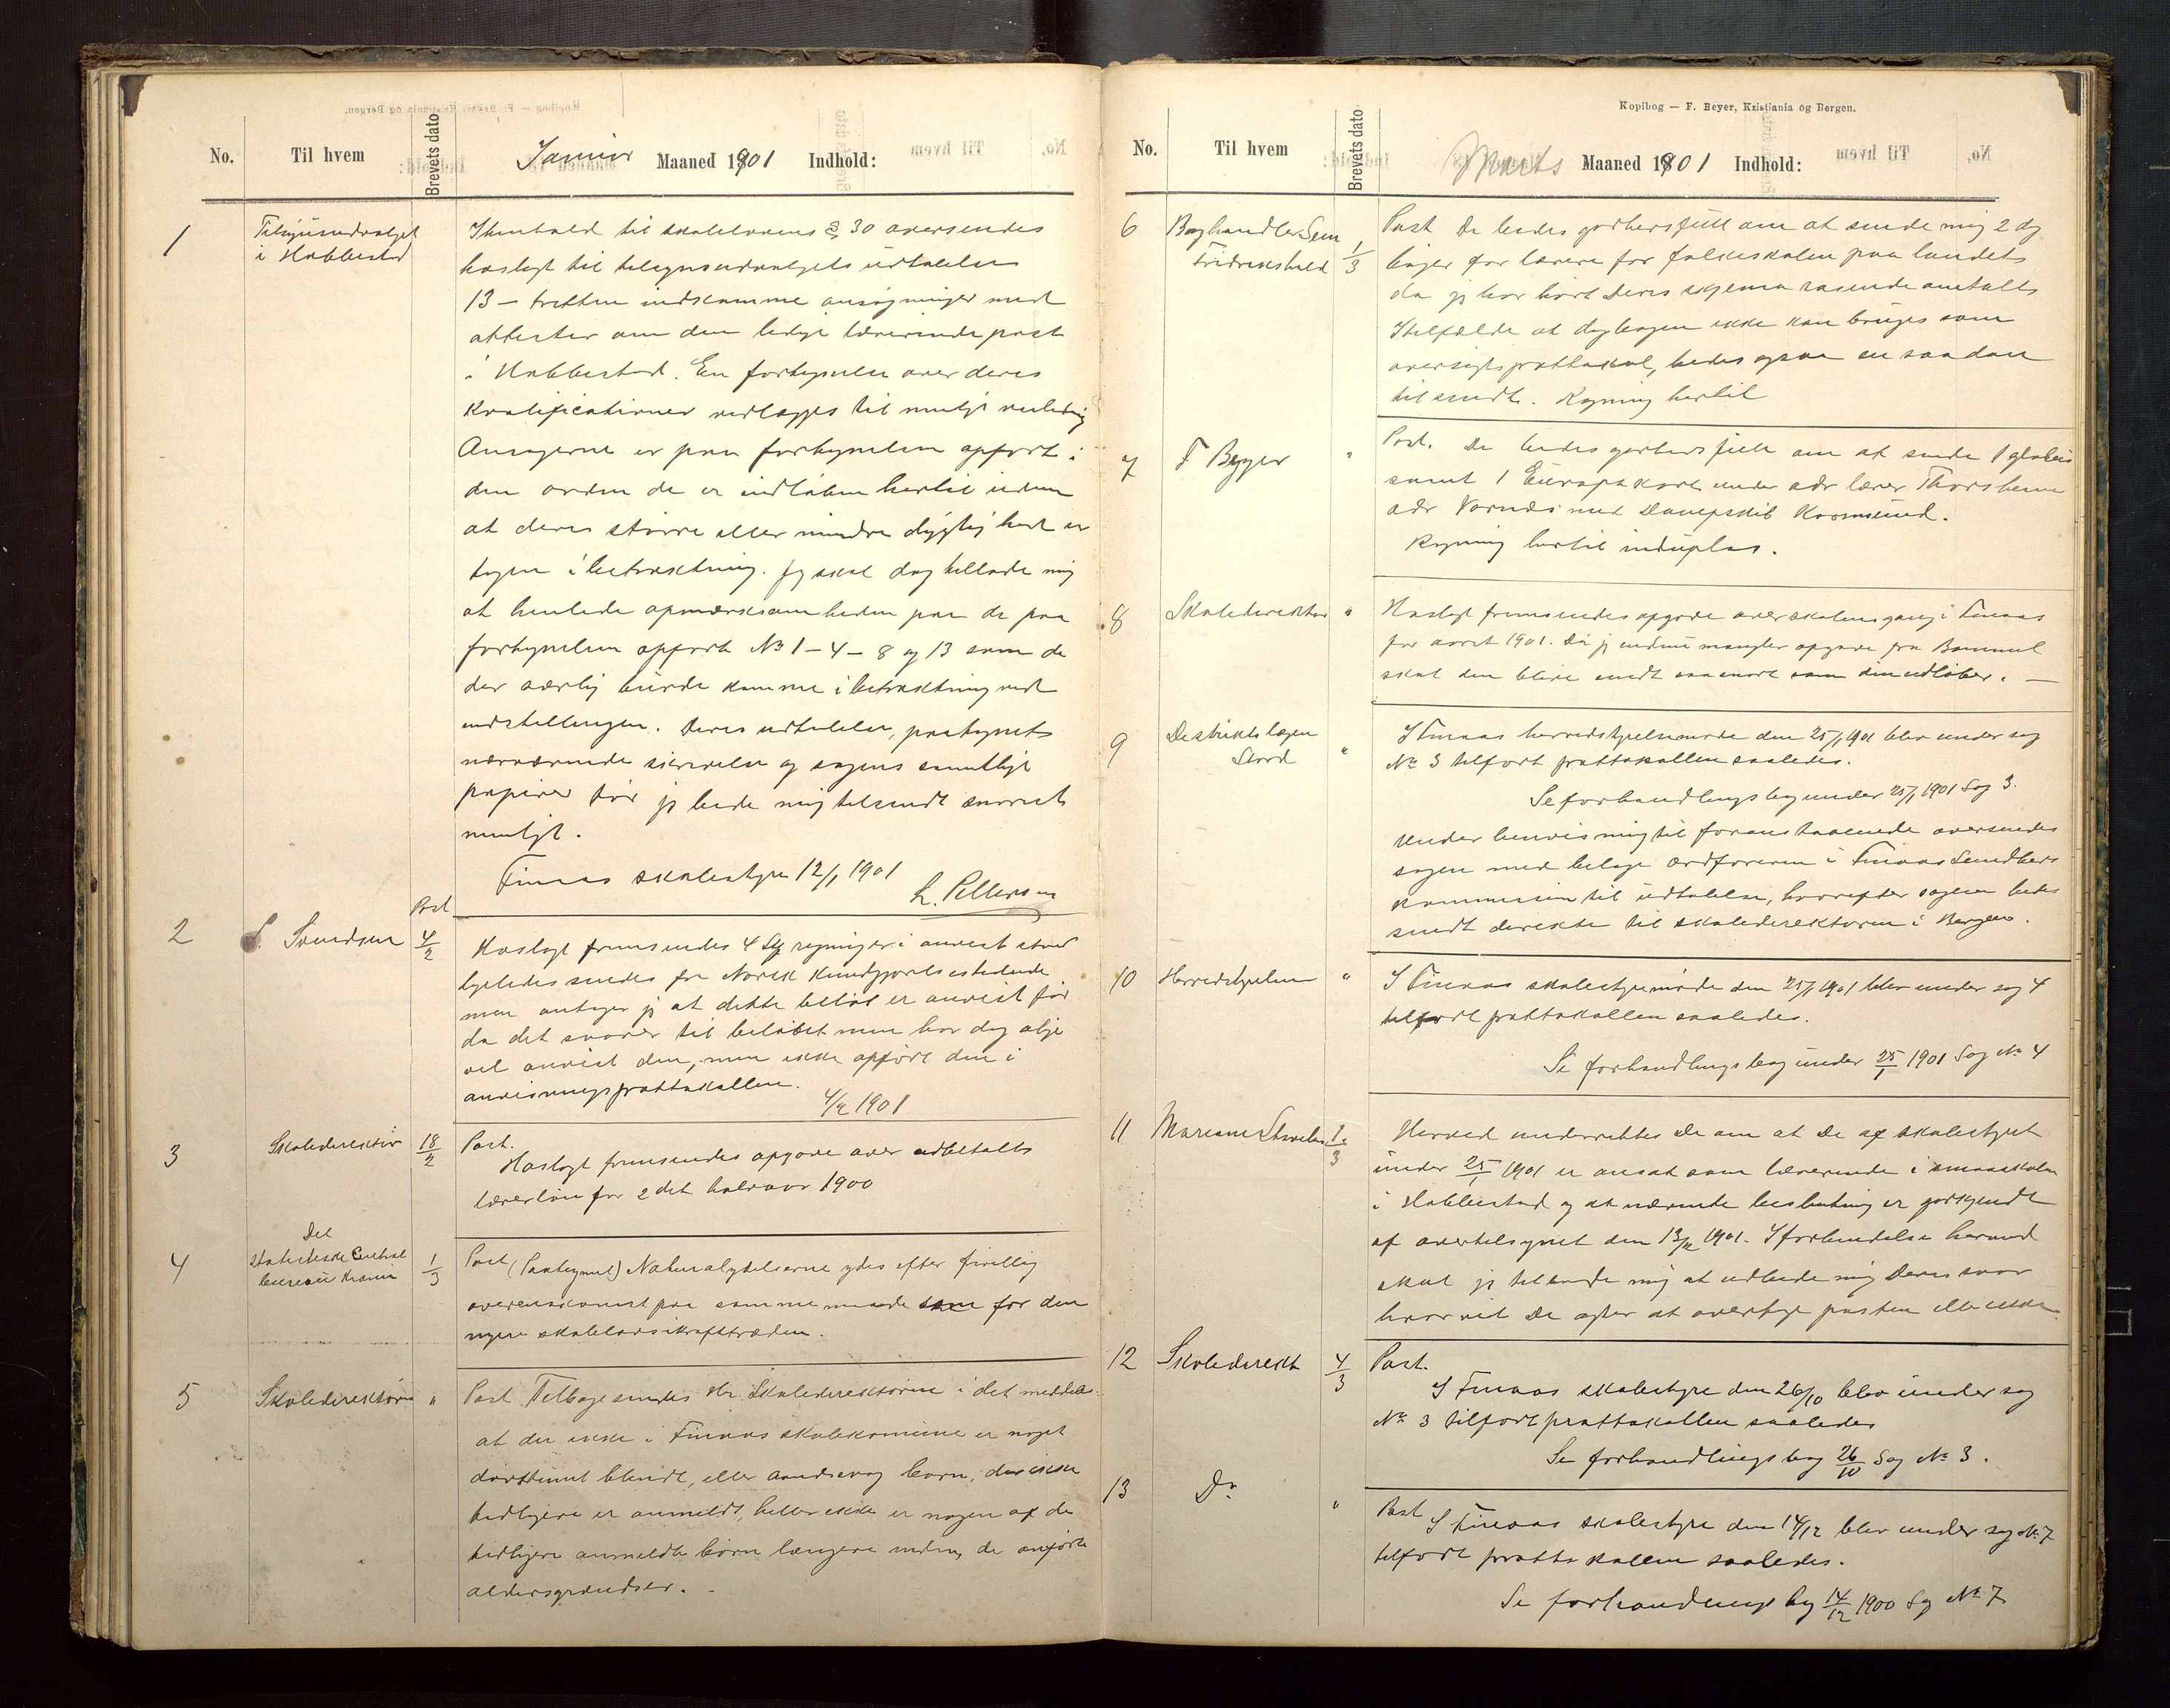 No. Til hvem Brevets dato Januar Maaned 1901 Indhold:
1 Tilsynsudvalget
i Hobbestad
I henhold til skolelovens § 30 oversendes
høflgst til tilsynsudvalgets udtalelse
13 – tretten indkomne ansøgninger med
attester om den ledige lærerinde post
i Hobbestad. En fortegnelse over deres
kvalificationer vedlægges til muligt veiledning
Ansøgerne er paa fortegnelsen opført i
den orden de er indløben hertil uden
at deres større eller mindre dygtighed er
tagen i betraktning. Jeg skal dog tillade mig
at henlede opmærksomheden paa de paa
fortegnelsen opførte No 1 – 4 – 8 og 13 som de
der særlig burde komme i betraktning ved
indstillingen. Deres udtalelse, paategnet
nærværende skrivelse og sagens samtlige
papirer tør jeg bede mig tilsendt snarest
muligt.
Finaas skolestyre 12/1 1901
L. Pettersen
2 S. Svendsen Post 4/2
Høflgst fremsendes 4 Stk regninger i anvist stand
ligeledes sendes fra Norsk Kundgjørelsestidende
men antager jeg at dette beløb er anvist før
da det svarer til beløbet men har dog alige
vel anvist den, men ikke opført den i
anvisningsprottokollen.
4/2 1901
3 Skoledirektør 18/2 Post.
Høflgst fremsendes opgave over udbetalts
lærerløn for 2det halvaar 1900
4 Det
Statistiske Central
bureau Kra.nia 1/3
Post (Paategnet) Naturalydelserne ydes efter frivillig
overenskomst paa samme maade som før den
nyere skolelovs ikrafttræden.
5 Skoledirektøren "
Post Tilbagesendes Hr. Skoledirektøren i det meddeles
at der ikke i Finaas skolekommune er noget
døvstumt blindt, eller aandssvag børn, der ikke
tidligere er anmeldt, heller ikke er nogen af de
tidligere anmeldte børn længere inden de anførte
aldersgrændser.
Kopibog — F. Beyer, Kristiania og Bergen.
No. Til hvem Brevets dato Marts Maaned 1901 Indhold:
6 Boghandler Sem
Fredrikshald 1/3
Post De bedes godhedsfuldt om at sende mig 2 dag
bøger for lærere for folkeskolen paa landet
da jeg har hørt Deres skjema rosende omtalt
I tilfælde at dagbogen ikke kan bruges som
oversigtsprottokol, bedes ogsaa en saadan
tilsendt. Regning hertil
7 F Beyer "
Post. De bedes godhedsfuldt om at sende 1 globus
samt 1 Europakart under adr lærer Thorsheim
adr Vornæs med Dampskib Karmsund.
Regning hertil induplo.
8 Skoledirektør "
Høflgst fremsendes opgave over skolens gang i Finaas
for aaret 1901. Da jeg endnu mangler opgave fra Bømmel
skal den blive sendt saasnart som den indløber. —
9 Distriktslægen
Stord "
I Finaas herredstyrelsemøde den 25/1 1901 blev under sag
No 3 tilført prottokollen saaledes.
Se forhandlingsbog under 25/1 1901 Sag 3.
Under henvisning til foranstaaende oversendes
sagen med bilage ordføreren i Finaas Sundheds
kommission til udtalelse, hvorefter sagen bedes
sendt direkte til skoledirektøren i Bergen.
10 Herredstyrelsen "
I Finaas skolestyremøde den 25/1 1901 blev under sag 4
tilført prottokollen saaledes.
Se forhandlingsbog under 25/1 1901 Sag No 4
11 Mariane 1/3
Herved underrettes De om at De af skolestyret
under 25/1 1901 er ansat som lærerinde i smaaskolen
i Hobbestad og at nævnte beslutning er godkjendt
af overtilsynet den 13/2 1901. I forbindelse hermed
skal jeg tillade mig at udbede mig Deres svar
hvorvidt De agter at overtage posten eller ikke
12 Skoledirekt 4/3 Post.
I Finaas skolestyre den 26/10 blev under sag
No 3 tilført prottokollen saaledes
Se forhandlingsbog 26/10 Sag No 3.
13 Do "
Post I Finaas skolestyre den 14/12 blev under sag No 7
tilført prottokollen saaledes.
Se forhandlings bog 14/12 1900 Sag No 7